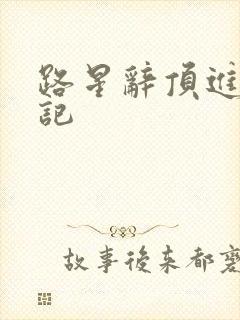 路星辭頂進
記
故事後来都